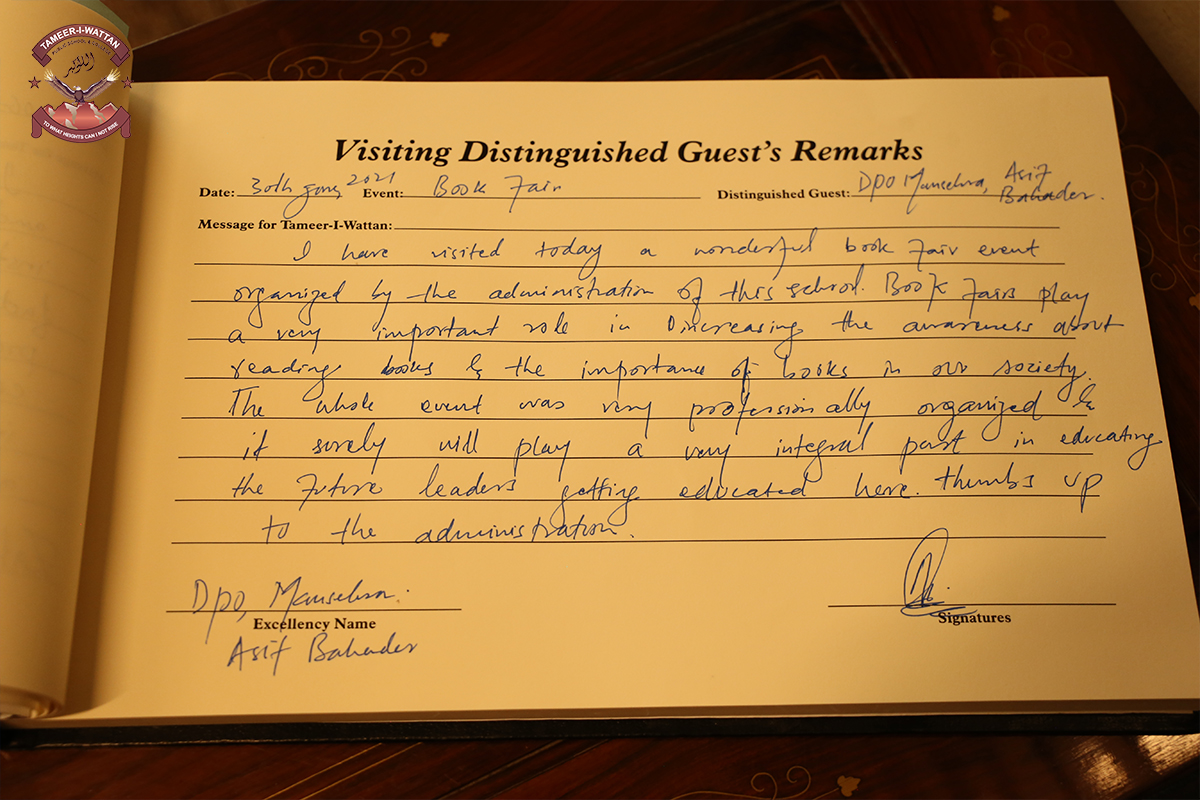 TAMEER-I-WATTAN
PUBLIC SCHOOL & COLLEGE
TO WHAT HEIGHTS CAN I NOT RISE
Visiting Distinguished Guest's Remarks
Date: 30th 2021 Event: Book Fair Distinguished Guest: DPO Mansehra, Asif Bahader.
Message for Tameer-I-Wattan:
I have visited today a wonderful book Fair event
organized by the administration of this school. Book Fairs play
a very important role in increasing the awareness about
reading books & the importance of books in our society.
The whole event was very professionally organized &
it surely will play a very integral part in educating
the Future leaders getting educated here. Thumbs up
to the administration.
DPO, Mansehra.
Excellency Name
Signatures
Asif Bahader